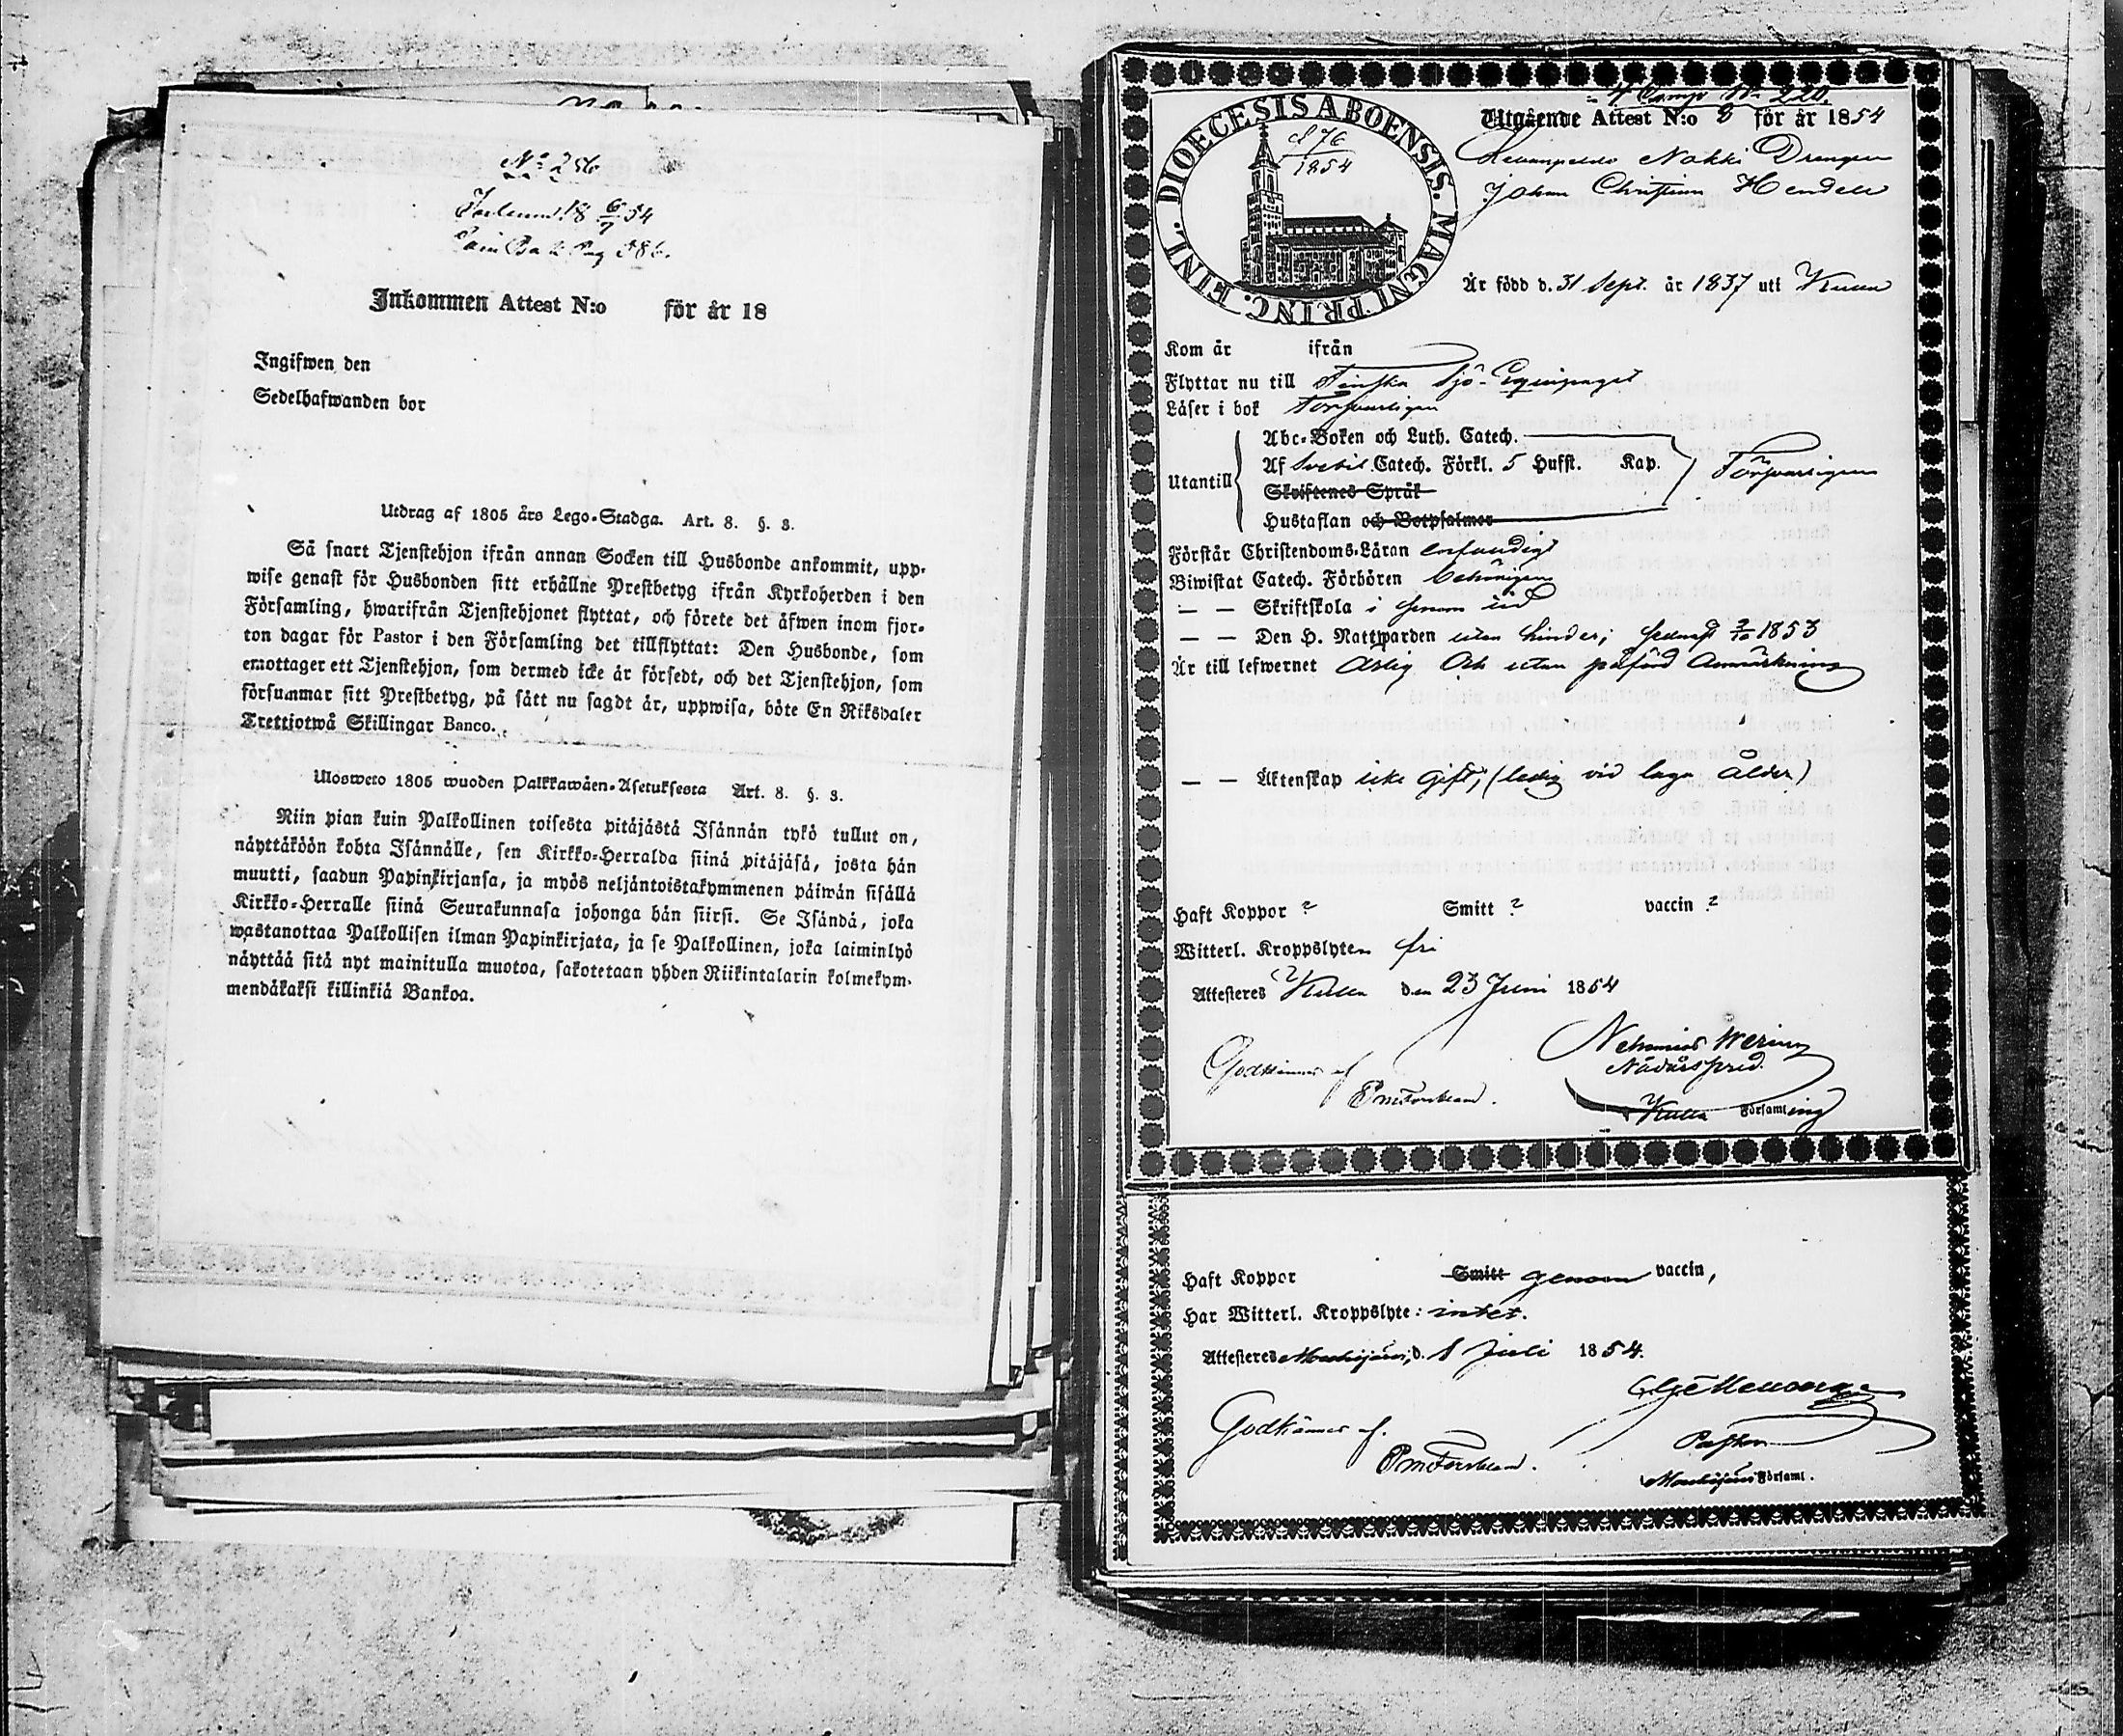 No 256
18 6/7 54
Pag 386.
Inkommen Attest N:o för år 18
Ingifwen den
Sedelhafwanden bor
Utdrag af 1805 års Lego-Stadga. Art. 8. §. 3.
Så snart Tjenstehjon ifrån annan Socken till Husbonde ankommit, upp-
wise genast för Husbonden sitt erhållne Prestbetyg ifrån Kyrkoherden i den
Församling, hwarifrån Tjenstehjonet flyttat, och förete det äfwen inom fjor-
ton dagar för Pastor i den Församling det tillflyttat: Den Husbonde, som
emottager ett Tjenstehjon, som dermed icke är försedt, och det Tjenstehjon, som
försummar sitt Prestbetyg, på sätt nu sagdt är, uppwisa, böte En Riksdaler
Trettiotwå Skillingar Banco.
Ulosweto 1805 wuoden Palkkawäen-Asetuksesta Art. 8. §. 3.
Niin pian kuin Palkollinen toisesta pitäjästä Isännän tykö tullut on,
näyttäköön kohta Isännälle, sen Kirkko-Herralda siinä pitäjäsä, josta hän
muutti, saadun Papinkirjansa, ja myös neljäntoistakymmenen päiwän sisällä
Kirkko-Herralle siinä Seurakunnasa johonga hän siirsi. Se Isändä, joka
wastanottaa Palkollisen ilman Papinkirjata, ja se Palkollinen, joka laiminlyö
näyttää sitä nyt mainitulla muotoa, sakotetaan yhden Riikintalarin kolmekym-
mendäkaksi killinkiä Bankoa.
DIOECESIS ABOENSIS. MAGNI PRINC. FINL.
76
1854
4 Comp No 220.
Utgående Attest N:o 8 för år 1854
Nakki Drengen
Johan Christian Hendell
Är född d. 31 Sept. år 1837 uti Kulla
Kom år ifrån
Flyttar nu till Finska Sjö-Equipaget
Läser i bok Försvarligen
Utantill
Abc-Boken och Luth. Catech.
Af Svebil. Catech. Förkl. 5 Hufst. Kap.
Försvarligen
Skriftenes Språk
Hustaflan och Botpsalmer
Förstår Christendoms-Läran
Biwistat Catech. Förhören behörigen
— — Skriftskola i
— — Den H. Nattwarden utan hinder; senast 2/10 1853
Är till lefwernet ärlig och utan påförd Anmärkning
— — Äktenskap icke gift, (ledig vid laga ålder)
Haft Koppor ? Smitt ? vaccin ?
Witterl. Kroppslyten fri
Attesteres Kulla den 23 Juni 1854
Nehemias Wering
Nådårspred.
Kulla Församling
Godkännes af
Haft Koppor Smitt genom vaccin,
Har Witterl. Kroppslyte: intet.
Attesteres d. 1 Juli 1854.
Godkännes af.
Pastor
Församl.